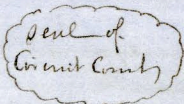 Seal of
Circuit Court